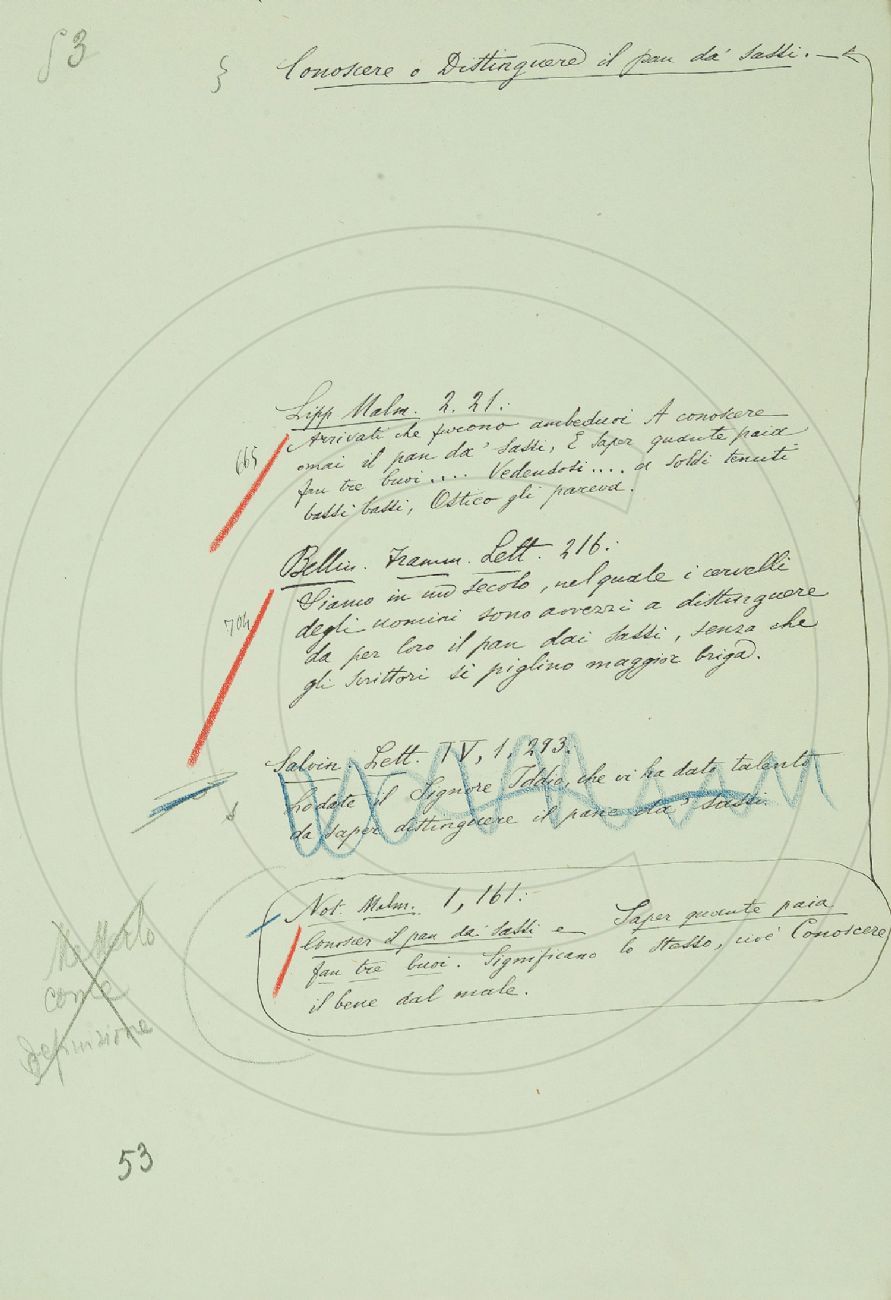 53
§ Conoscere o Distinguere il pan da' sassi. —
Lipp Malm. 2. 21.:
665
Arrivati che furono ambeduoi A conoscere
omai il pan da' sassi, E saper quante paia
fan tre buoi.... Vedendosi.... a soldi tenuti
bassi bassi, Ostico gli pareva.
Bellin. Framm. Lett. 216:
704
Siamo in un secolo, nel quale i cervelli
degli uomini sono avvezzi a distinguere
da per loro il pan dai sassi, senza che
gli scrittori si piglino maggior briga.
Salvin. Lett. IV, 1, 293.
Lodate il Signore Iddio, che vi ha dato talento
da saper distinguere il pane da' sassi.
Not. Malm. 1, 161:
Conoscer il pan dai sassi e Saper quante paia
fan tre buoi. Significano lo stesso, cioè Conoscere
il bene dal male.
Metterlo
come
Definizione
53